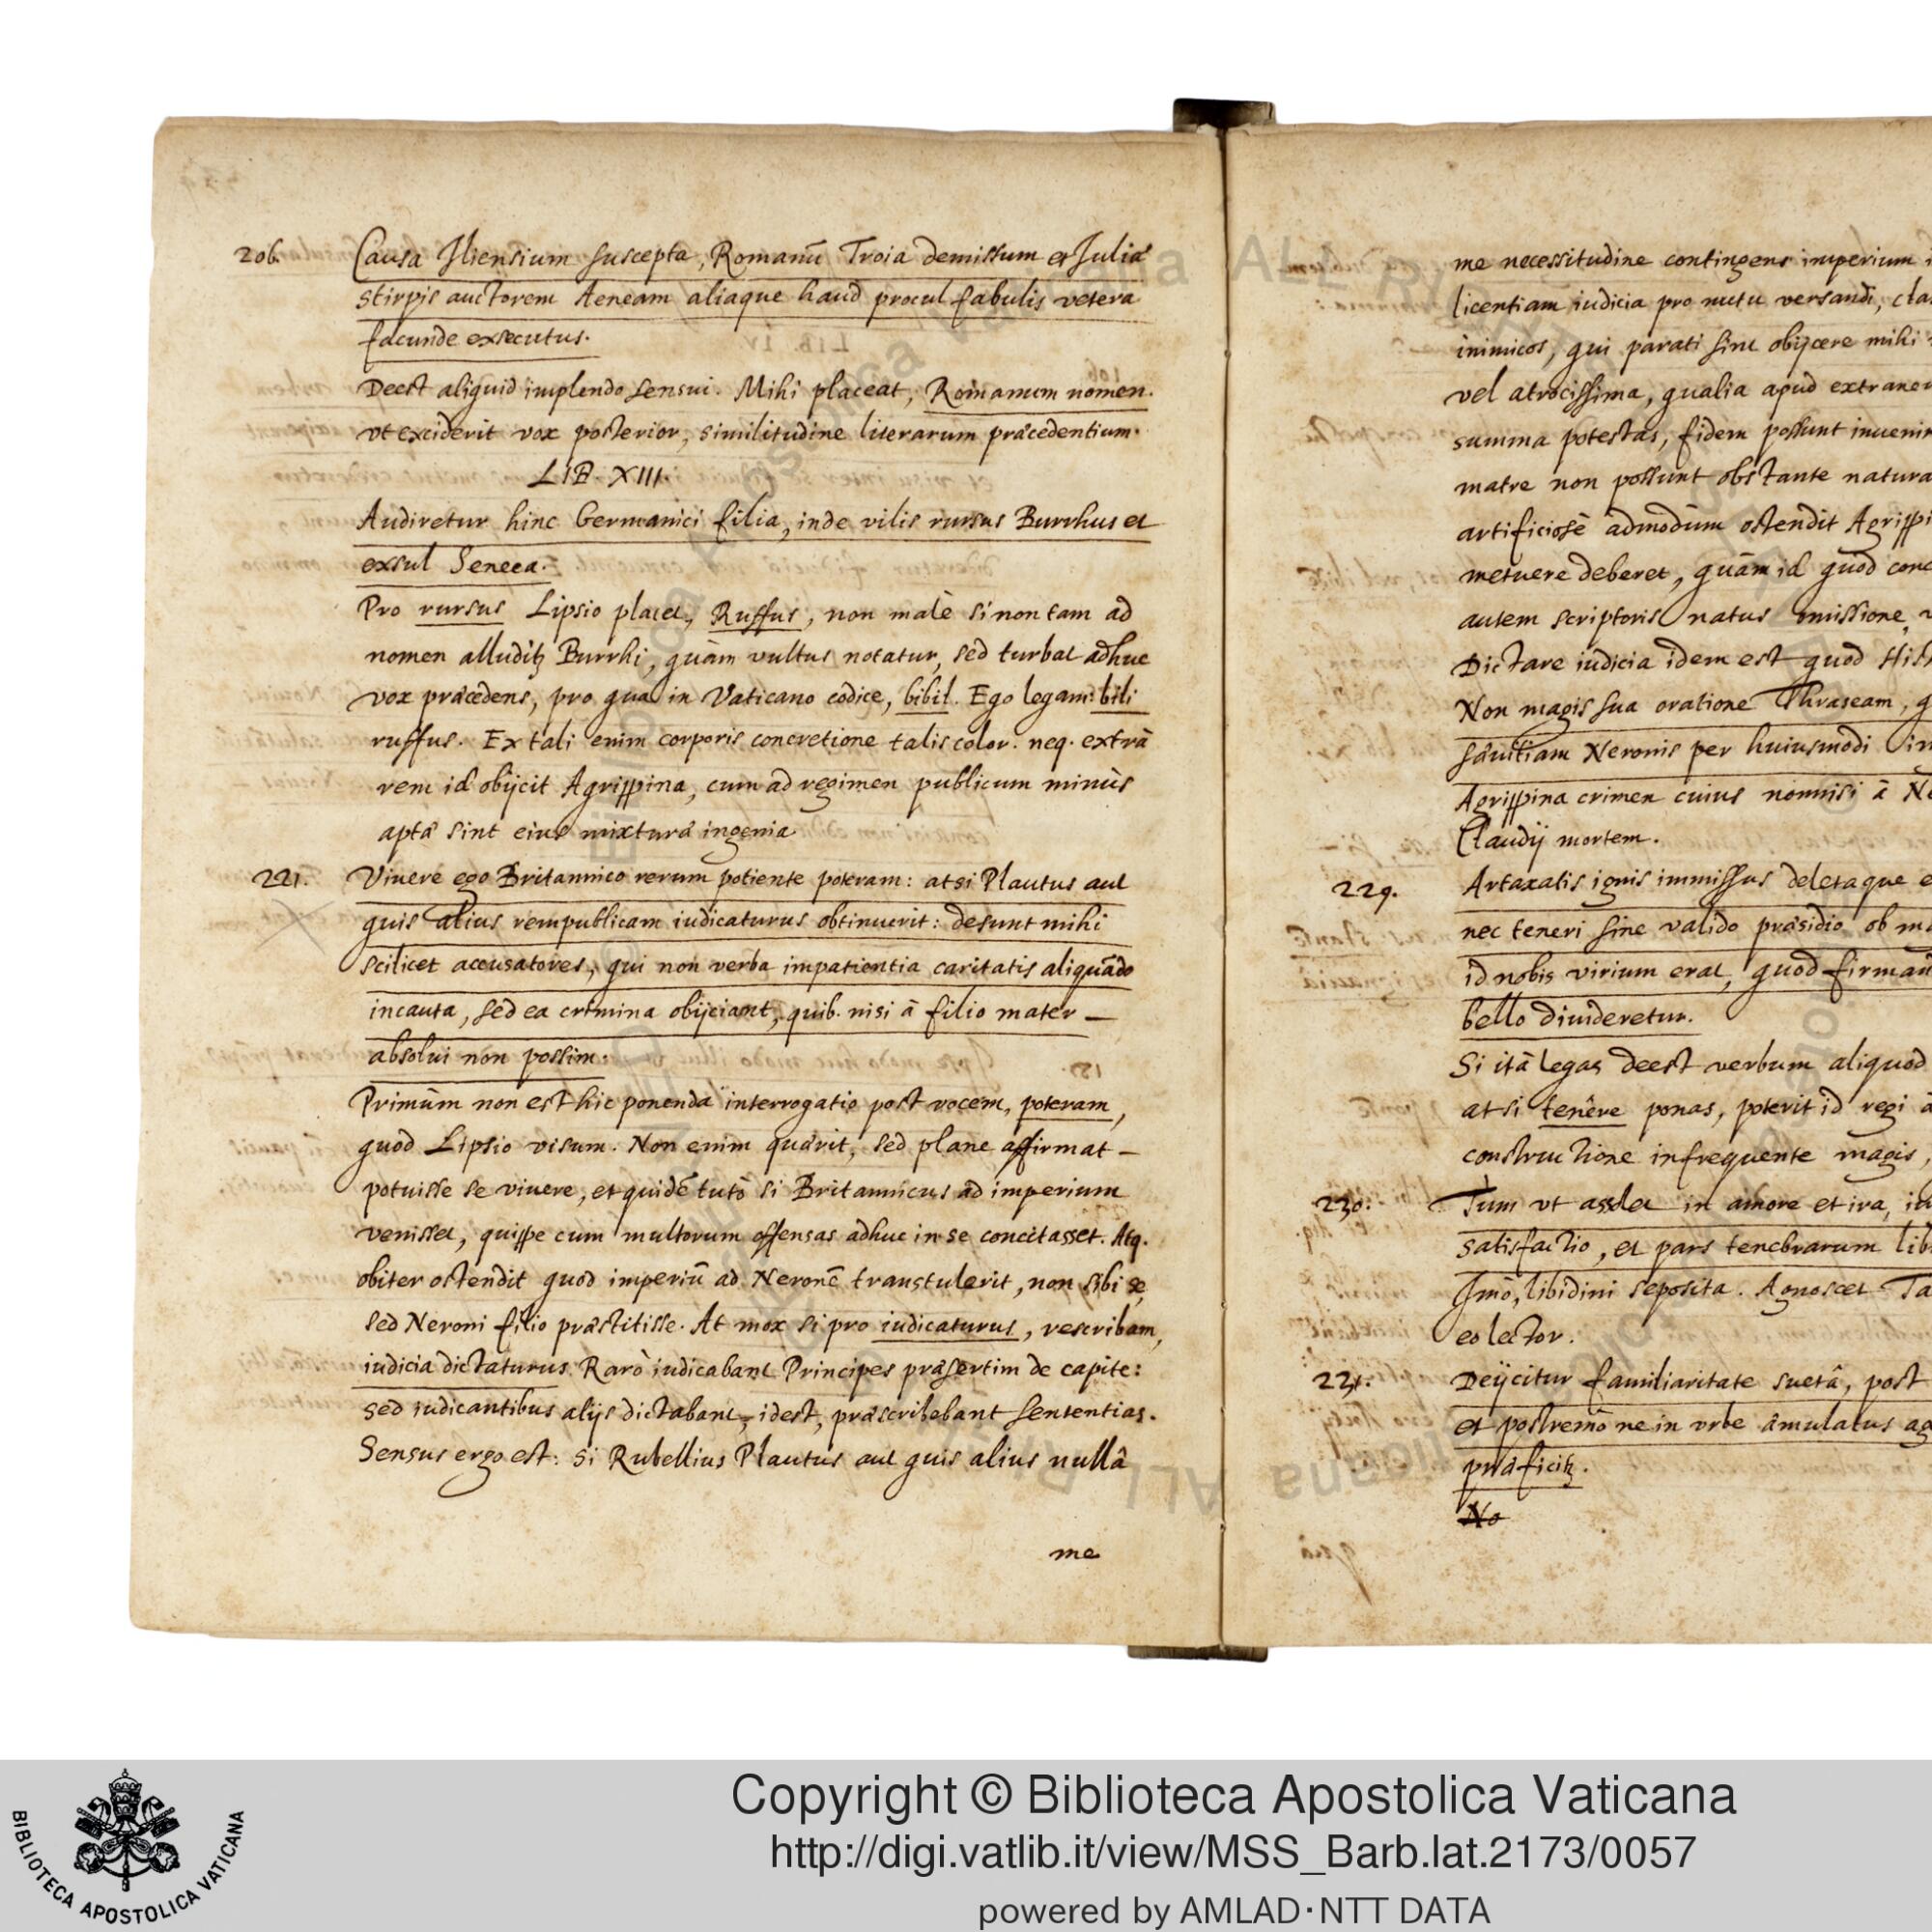 206. Causa Iliensium suscepta, Romanũ Troia demissum et Juliæ
stirpis auctorem Aeneam aliaque haud procul fabulis vetera
facunde exsecutus.
Deest aliquid implendo sensui. Mihi placeat, Romanum nomen.
vt exciderit vox posterior, similitudine literarum præcedentium.
LIB. XIII.
Audiretur hinc Germanici filia, inde vilis rursus Burrhus et
exsul Seneca.
Pro rursus Lipsio placet, Ruffus, non malè si non tam ad
nomen alludit Burrhi, quàm vultus notatur, sed turbat adhuc
vox præcedens, pro qua in Vaticano codice, bibil. Ego legam: bili
ruffus. Ex tali enim corporis concretione talis color. neq. extrà
rem id obijcit Agrippina, cum ad regimen publicum minùs
apta sint eius mixturæ ingenia
221. Viuere ego Britannico rerum potiente poteram: at si Plautus aut
quis alius rempublicam iudicaturus obtinuerit: desunt mihi
scilicet accusatores, qui non verba impatientia caritatis aliquãdo
incauta, sed ea crimina obijciant, quib. nisi â filio mater
absolui non possim.
Primùm non est hic ponenda interrogatio post vocem, poteram,
quod Lipsio visum. Non enim quærit, sed plane affirmat
potuisse se viuere, et quidẽ tutò si Britannicus ad imperium
venisset, quippe cum multorum offensas adhuc in se concitasset. Atq.
obiter ostendit quod imperiũ ad Neronẽ transtulerit, non sibi se,
sed Neroni filio præstitisse. At mox si pro iudicaturus, rescribam,
iudicia dictaturus. Rarò iudicabant Principes præsertim de capite:
sed iudicantibus alijs dictabant, idest, præscribebant sententias.
Sensus ergo est: si Rubellius Plautus aut quis alius nullâ
me
me necessitudine contingens imperium
licentiam iudicia pro nutu versandi,
inimicos, qui parati sint obijcere mihi
vel atrocissima, qualia apud
summa potestas, fidem possunt
matre non possunt obstante natura
artificiosè admodùm ostendit
metuere deberet, quàm id quod
autem scriptoris natus omissione,
Dictare iudicia idem est quod
Non magis sua oratione Thraseam,
sæuitiam Neronis per huiusmodi
Agrippina crimen cuius nonnisi â
Claudij mortem.
229. Artaxatis ignis immissus deletaque
nec teneri sine valido præsidio ob
id nobis virium erat, quod
bello diuideretur.
Si ità legas deest verbum aliquod
at si tenêre ponas, poterit id regi
constructione infrequente magis,
230. Tum vt assolet in amore et ira,
satisfactio, et pars tenebrarum
Jmò, libidini seposita. Agnoscet
eo lector.
231. Deijcitur familiaritate suetâ, post
et postremò ne in vrbe æmulatus
præficit.
No
Copyright © Biblioteca Apostolica Vaticana
http://digi.vatlib.it/view/MSS_Barb.lat.2173/0057
powered by AMLAD·NTT DATA
BIBLIOTECA APOSTOLICA VATICANA